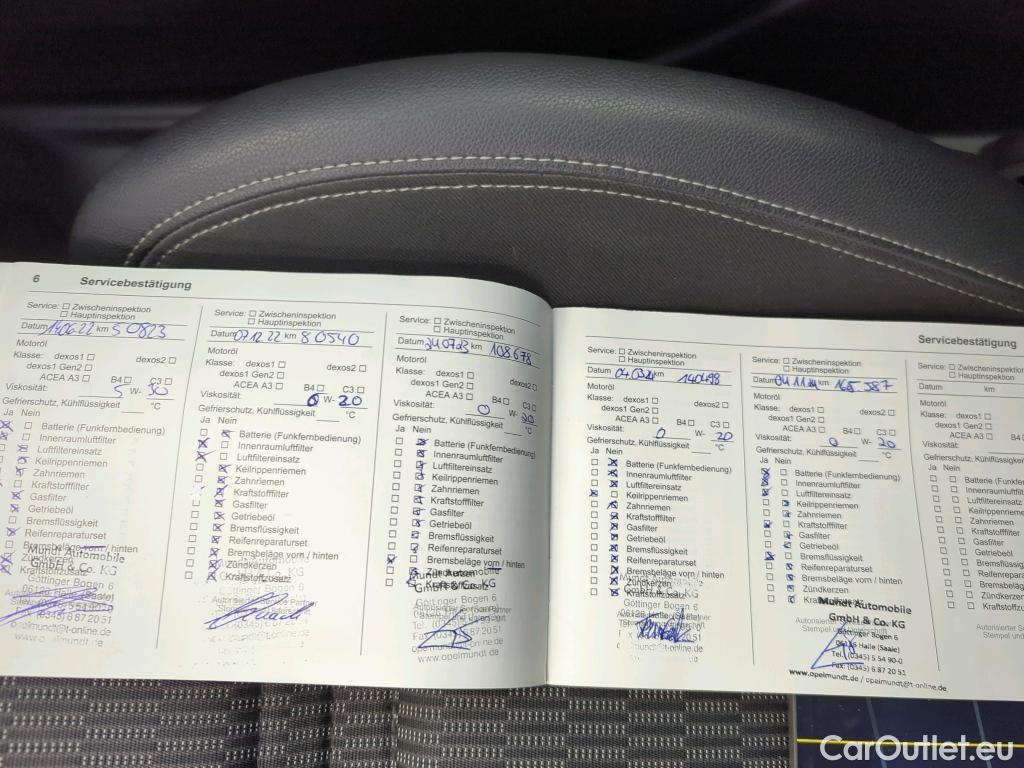 6 Servicebestätigung
Service: Zwischeninspektion
Hauptinspektion
Datum 14.06.22 km 50823
Motoröl
Klasse: dexos1 dexos2
dexos1 Gen2
ACEA A3 B4 C3
Viskosität: 5 W- 30
Gefrierschutz, Kühlflüssigkeit °C
Ja Nein
Batterie (Funkfernbedienung)
Innenraumluftfilter
Luftfiltereinsatz
Keilrippenriemen
Zahnriemen
Kraftstofffilter
Gasfilter
Getriebeöl
Bremsflüssigkeit
Reifenreparaturset
Bremsbeläge vorn / hinten
Zündkerzen
Kraftstoffzusatz
Mundt Automobile
GmbH & Co. KG
Göttinger Bogen 6
06126 Halle (Saale)
Service: Zwischeninspektion
Hauptinspektion
Datum 07.12.22 km 80540
Motoröl
Klasse: dexos1 dexos2
dexos1 Gen2
ACEA A3 B4 C3
Viskosität: 0 W- 20
Gefrierschutz, Kühlflüssigkeit °C
Ja Nein
Batterie (Funkfernbedienung)
Innenraumluftfilter
Luftfiltereinsatz
Keilrippenriemen
Zahnriemen
Kraftstofffilter
Gasfilter
Getriebeöl
Bremsflüssigkeit
Reifenreparaturset
Bremsbeläge vorn / hinten
Zündkerzen
Kraftstoffzusatz
Service: Zwischeninspektion
Hauptinspektion
Datum 24.07.23 km 108678
Motoröl
Klasse: dexos1 dexos2
dexos1 Gen2
ACEA A3 B4 C3
Viskosität: 0 W- 20
Gefrierschutz, Kühlflüssigkeit °C
Ja Nein
Batterie (Funkfernbedienung)
Innenraumluftfilter
Luftfiltereinsatz
Keilrippenriemen
Zahnriemen
Kraftstofffilter
Gasfilter
Getriebeöl
Bremsflüssigkeit
Reifenreparaturset
Bremsbeläge vorn / hinten
GmbH & Co. KG
Göttinger Bogen 6
www.opelmundt.de
Servicebestätigung
Service: Zwischeninspektion
Hauptinspektion
Datum km 140498
Motoröl
Klasse: dexos1 dexos2
dexos1 Gen2
ACEA A3 B4 C3
Viskosität: 0 W- 20
Gefrierschutz, Kühlflüssigkeit °C
Ja Nein
Batterie (Funkfernbedienung)
Innenraumluftfilter
Luftfiltereinsatz
Keilrippenriemen
Zahnriemen
Kraftstofffilter
Gasfilter
Getriebeöl
Bremsflüssigkeit
Reifenreparaturset
Bremsbeläge vorn / hinten
Zündkerzen
Kraftstoffzusatz
Göttinger Bogen 6
06126 Halle (Saale)
Service: Zwischeninspektion
Hauptinspektion
Datum 04.11.24 km 165 387
Motoröl
Klasse: dexos1 dexos2
dexos1 Gen2
ACEA A3 B4 C3
Viskosität: 0 W- 20
Gefrierschutz, Kühlflüssigkeit °C
Ja Nein
Batterie (Funkfernbedienung)
Innenraumluftfilter
Luftfiltereinsatz
Keilrippenriemen
Zahnriemen
Kraftstofffilter
Gasfilter
Getriebeöl
Bremsflüssigkeit
Reifenreparaturset
Bremsbeläge vorn / hinten
Zündkerzen
Kraftstoffzusatz
Mundt Automobile
GmbH & Co. KG
Göttinger Bogen 6
06126 Halle (Saale)
Tel.: (0345) 5 54 90-0
Fax: (0345) 6 87 20 51
www.opelmundt.de / opelmundt@t-online.de
Service:
Datum km
Motoröl
Klasse: dexos1
dexos1 Gen2
ACEA A3
Viskosität:
Gefrierschutz, Kühlflüssigkeit
Ja Nein
Innenraumluftfilter
Luftfiltereinsatz
Keilrippenriemen
Zahnriemen
Kraftstofffilter
Gasfilter
Getriebeöl
Bremsflüssigkeit
Zündkerzen
CarOutlet.eu